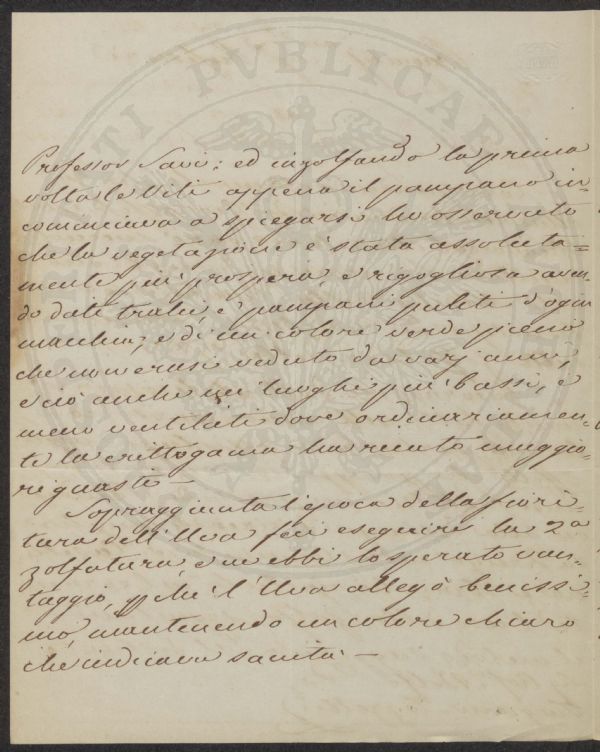 Professor Savi; ed inzolfando la prima
volta le Viti appena il pampano in-
cominciava a spiegarsi ho osservato
che la vegetazione è stata assoluta-
mente più prospera e rigogliosa aven-
do dati tralci, e pampani puliti d'ogni
macchia, e di un colore verde pieno
che non erasi veduto da varj anni,
e ciò anche nei luoghi più bassi, e
meno ventilati dove ordinariamen-
te la crittogama ha recato maggio-
ri guasti —
Sopraggiunta l'epoca della fiori-
tura dell'Uva feci eseguire la 2ª
zolfatura, e ne ebbi lo sperato van-
taggio, pchè l'Uva allegò benissi-
mo, mantenendo un colore chiaro
che indicava sanità —
PVBLICAE